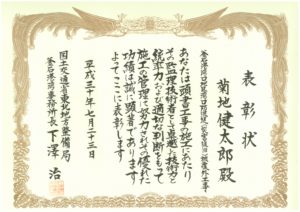 表彰状
菊地健太郎殿
あなたは頭書工事の施工にあたり
その監理技術者として卓越した技術力と
統率力および適切な判断をもって
施工の管理に努力されその優れた
功績は誠に顕著であります
よってここに表彰します
平成三十年七月二十三日
国土交通省東北地方整備局
釜石港湾事務所長 下澤治